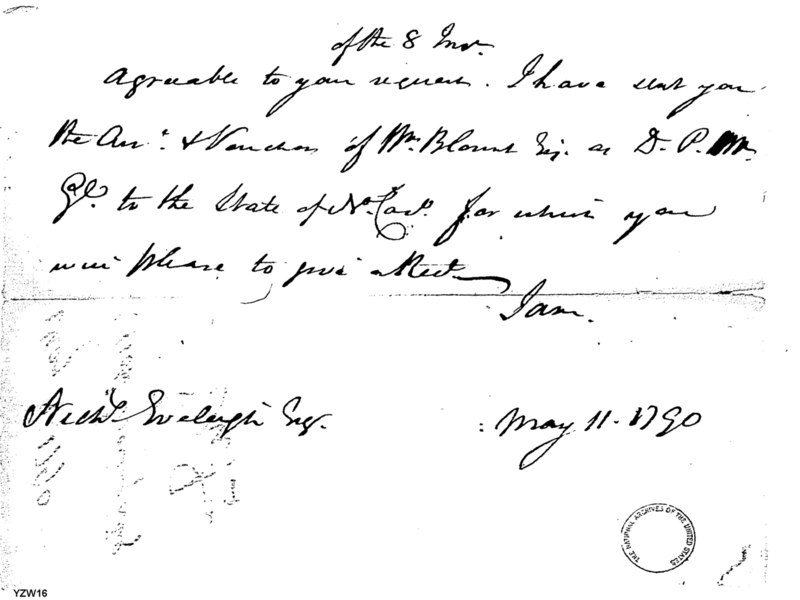 of the 8 Inst.
Agreeable to your request. I have sent you
the Accts. & Vouchers of Wm. Blount Esq. as D. P. M
Gl. to the State of No. Caro. for which you
will please to give a Rect.
I am.
Nichs. Eveleigh Esqr.
May 11. 1790
THE NATIONAL ARCHIVES OF THE UNITED STATES
YZW16